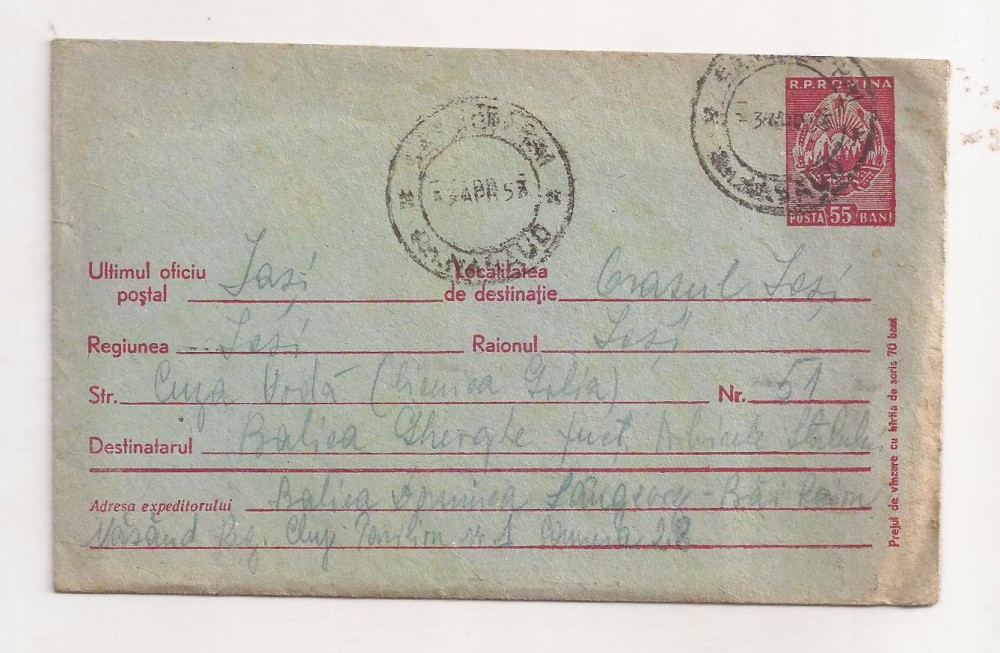 R.P.ROMINA
POSTA 55 BANI
APR 53
NASAUD
Ultimul oficiu poștal Iași
Localitatea de destinație Orasul Iași
Regiunea Iași Raionul Iași
Str. Cuza Vodă ( Golia) Nr. 51
Destinatarul Balica
Adresa expeditorului Balica Sângeorz-Băi Raion
Năsăud Reg. Cluj Pavilion nr 1 Camera 28
Prețul de vînzare cu hîrtia de scris 70 bani